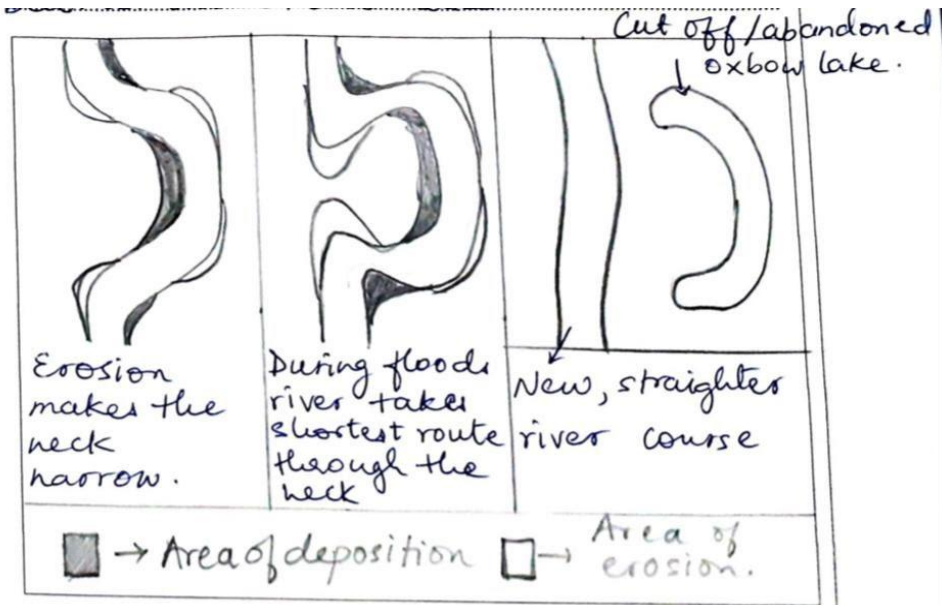 Cut off/abandoned
oxbow lake.
Erosion
makes the
neck
narrow.
During floods
river takes
shortest route
through the
neck
New, straighter
river course
→ Area of deposition
→ Area of
erosion.